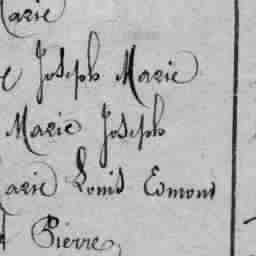 Marie
Joseph Marie
Marie Joseph
Marie Louis Edmond
Pierre